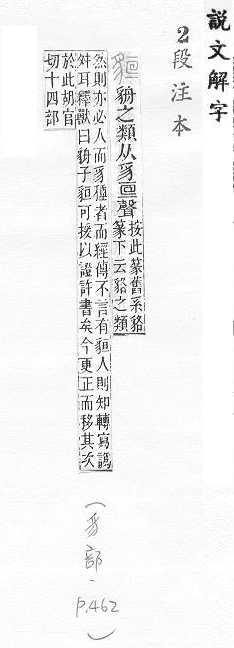 說文解字
2段注本
貆 貈之類从豸亘聲 按此篆舊系貉
篆下云貉之類
然則亦必人而豸穜者而經傳不言有貆人則知轉寫譌
舛耳釋獸曰貈子貆可援以證許書矣今更正而移其次
於此胡官
切十四部
(豸部,
p.462
)